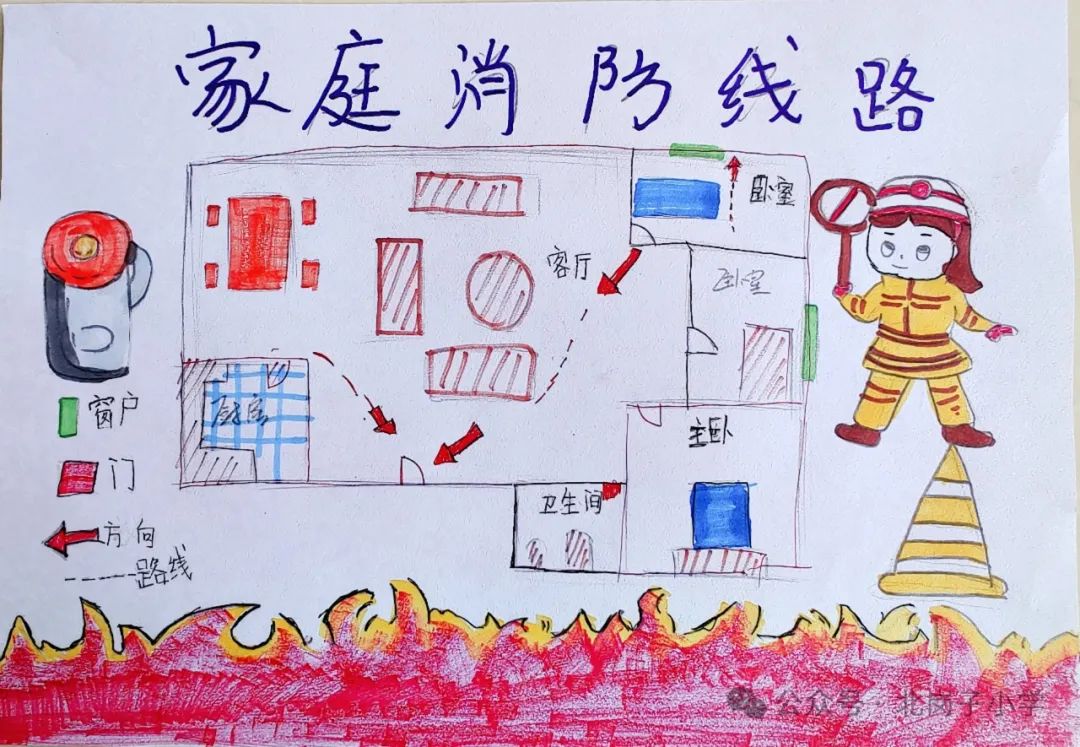 家庭消防线路
卧室
客厅
卧室
厨房
主卧
卫生间
窗户
门
方向
路线
公众号·北岗子小学